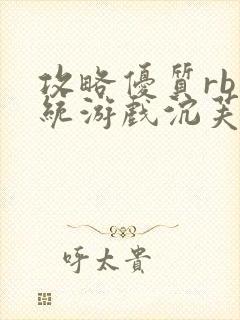 攻略優質rb
統游戲沉芙
呼太貴